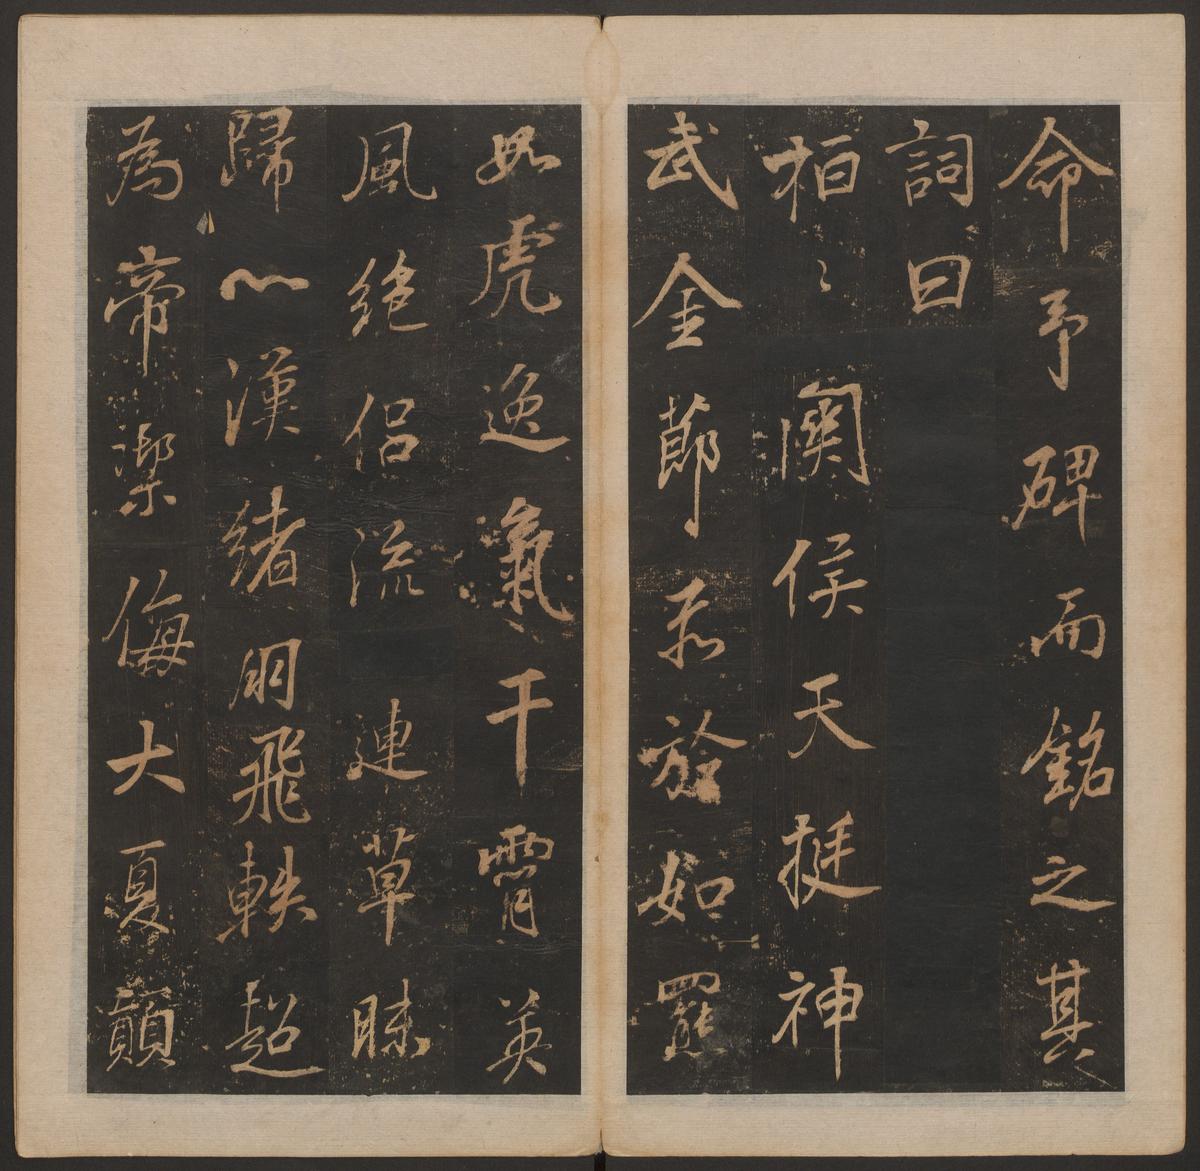 命予碑而銘之其
詞曰
桓〻關侯天挺神
武金節如羆
如虎逸氣干霄英
風絕侶流連草昧
歸心漢緒朋飛軼超
為帝禦侮大夏顛